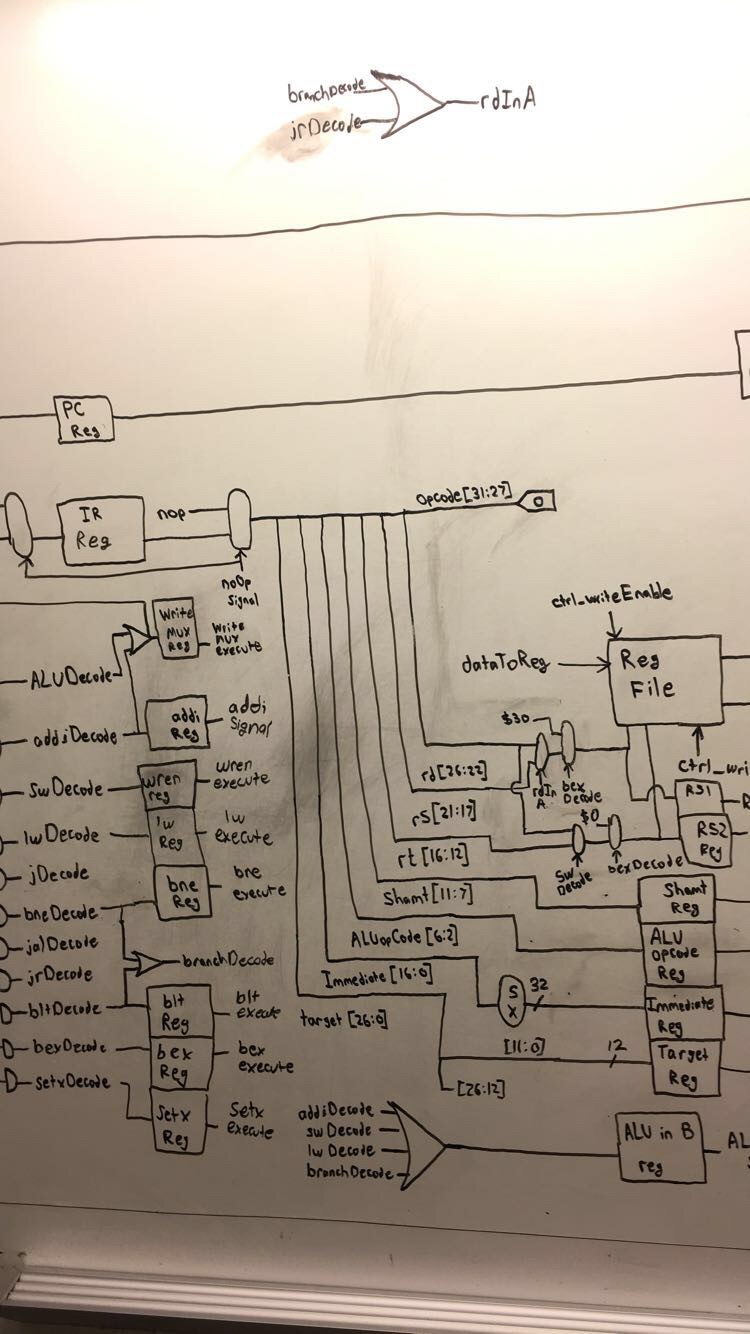 branchDecode
jrDecode
rdInA
PC
Reg
Opcode[31:27]
0
IR
Reg
nop
noOp
Signal
ctrl_writeEnable
Write
mux
Reg
Write
mux
execute
ALUDecode
dataToReg
Reg
File
addi
Reg
addi
Signal
addiDecode
$30
rd[26:22]
rdIn
A
bex
Decode
ctrl_wri
wren
reg
wren
execute
swDecode
RS1
R
rs[21:17]
$0
lw
Reg
lw
execute
lwDecode
RS2
Reg
rt[16:12]
sw
Decode
bexDecode
jDecode
bne
Reg
bne
execute
bneDecode
Shamt[11:7]
Shamt
Reg
jalDecode
ALUopCode[6:2]
ALU
opcode
Reg
jrDecode
branchDecode
Immediate[16:0]
S
X
32
Immediate
Reg
bltDecode
blt
Reg
blt
exeute
target[26:0]
bexDecode
bex
Reg
bex
execute
[11:0]
12
Target
Reg
setxDecode
[26:12]
Setx
Reg
Setx
execute
addiDecode
swDecode
lwDecode
branchDecode
ALU in B
reg
AL